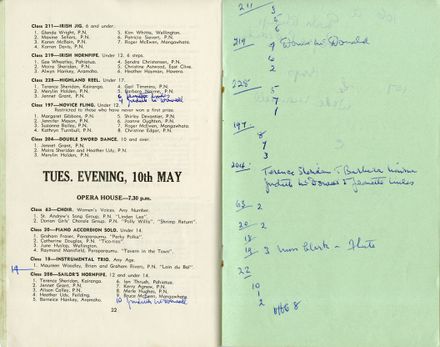 Class 211—IRISH JIG. 6 and under.
1. Glenda Wright, P.N.
2. Maxine Sellers, P.N.
3. Karen McBain, P.N.
4. Karran Davis, P.N.
5. Kim Whitta, Wellington.
6. Patricia Sievert, P.N.
7. Roger McEwen, Mangawhata.
Class 219—IRISH HORNPIPE. Under 12. 6 steps.
1. Gae Wheatley, Pahiatua.
2. Moira Sheridan, P.N.
3. Alwyn Hankey, Aramoho.
4. Sandra Christensen, P.N.
5. Christine Ashwood, East Clive.
6. Heather Hayman, Hawera.
Class 228—HIGHLAND REEL. Under 17.
1. Terence Sheridan, Kairanga.
2. Merylin Holden, P.N.
3. Jennet Grant, P.N.
4. Gail Timmins, P.N.
Class 197—NOVICE FLING. Under 12.
Restricted to those who have never won a first prize.
1. Margaret Gibbons, P.N.
2. Jennifer Mason, P.N.
3. Suzanne Bailey, P.N.
4. Kathryn Turnbull, P.N.
5. Shirley Devantier, P.N.
6. Joanne Oughton, P.N.
7. Roger McEwen, Mangawhata.
8. Christine Edgar, P.N.
Class 204—DOUBLE SWORD DANCE. 10 and over.
1. Jennet Grant, P.N.
2. Moira Sheridan and Heather Udy, P.N.
3. Merylin Holden, P.N.
TUES. EVENING, 10th MAY
OPERA HOUSE—7.30 p.m.
Class 63—CHOIR. Women's Voices. Any Number.
1. St. Andrew's Song Group, P.N. "Linden Lea".
2. Dorian Girls' Chorale Group, P.N. "Polly Willis", "Shrimp Return".
Class 20—PIANO ACCORDION SOLO. Under 14.
1. Graham Fraser, Paraparaumu. "Perky Polka".
2. Catherine Douglas, P.N. "Tico-tico".
3. June Hyslop, Wellington.
4. Raymond Mansfield, Paraparaumu. "Tavern in the Town".
19
Class 18—INSTRUMENTAL TRIO. Any Age.
1. Maureen Woodley, Brian and Graham Rivers, P.N. "Loin du Bal".
Class 208—SAILOR'S HORNPIPE. 12 and under 14.
1. Terence Sheridan, Kairanga.
2. Jennet Grant, P.N.
3. Alison Calley, P.N.
4. Heather Udy, Feilding.
5. Berneice Hankey, Aramoho.
6. Ian Thrush, Pahiatua.
7. Kerry Agnew, P.N.
8. Merle Hughes, P.N.
9. Bruce McEwen, Mangawhata.
22
211
3
5
6
219
7
6
2
228
5
7
1
197
8
7
3
204
63 – 2
20 2
18
19
22
10
1
2